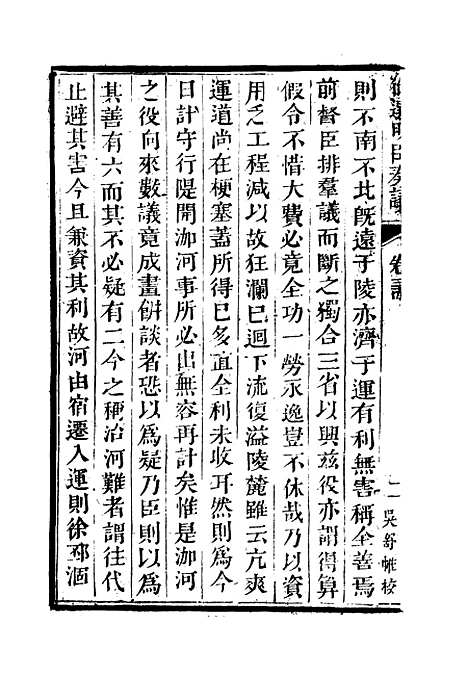 御選明臣奏議 卷三
則不南不北旣遠于陵亦濟于運有利無害稱全善焉
前督臣排羣議而斷之獨合三省以興兹役亦謂得算
假令不惜大費必竟全功一勞永逸豈不休哉乃以資
用乏工程減以故狂瀾已迴下流復溢陵麓雖云亢爽
運道尚在梗塞蓋所得已多直全利未收耳然則爲今
日計守行隄開泇河事所必出無容再計矣惟是泇河
之役向來數議竟成畫餅談者恐以爲疑乃臣則以爲
其善有六而其不必疑有二今之稱治河難者謂往代
止避其害今且兼資其利故河由宿遷入運則徐邳涸
吳舒帷校